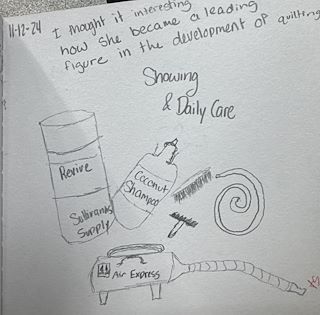 11-12-24 I thought it interesting
how she became a leading
figure in the development of quilting
Showing
& Daily Care
Revive
Sullivans
Supply
Coconut
Shampoo
Air Express